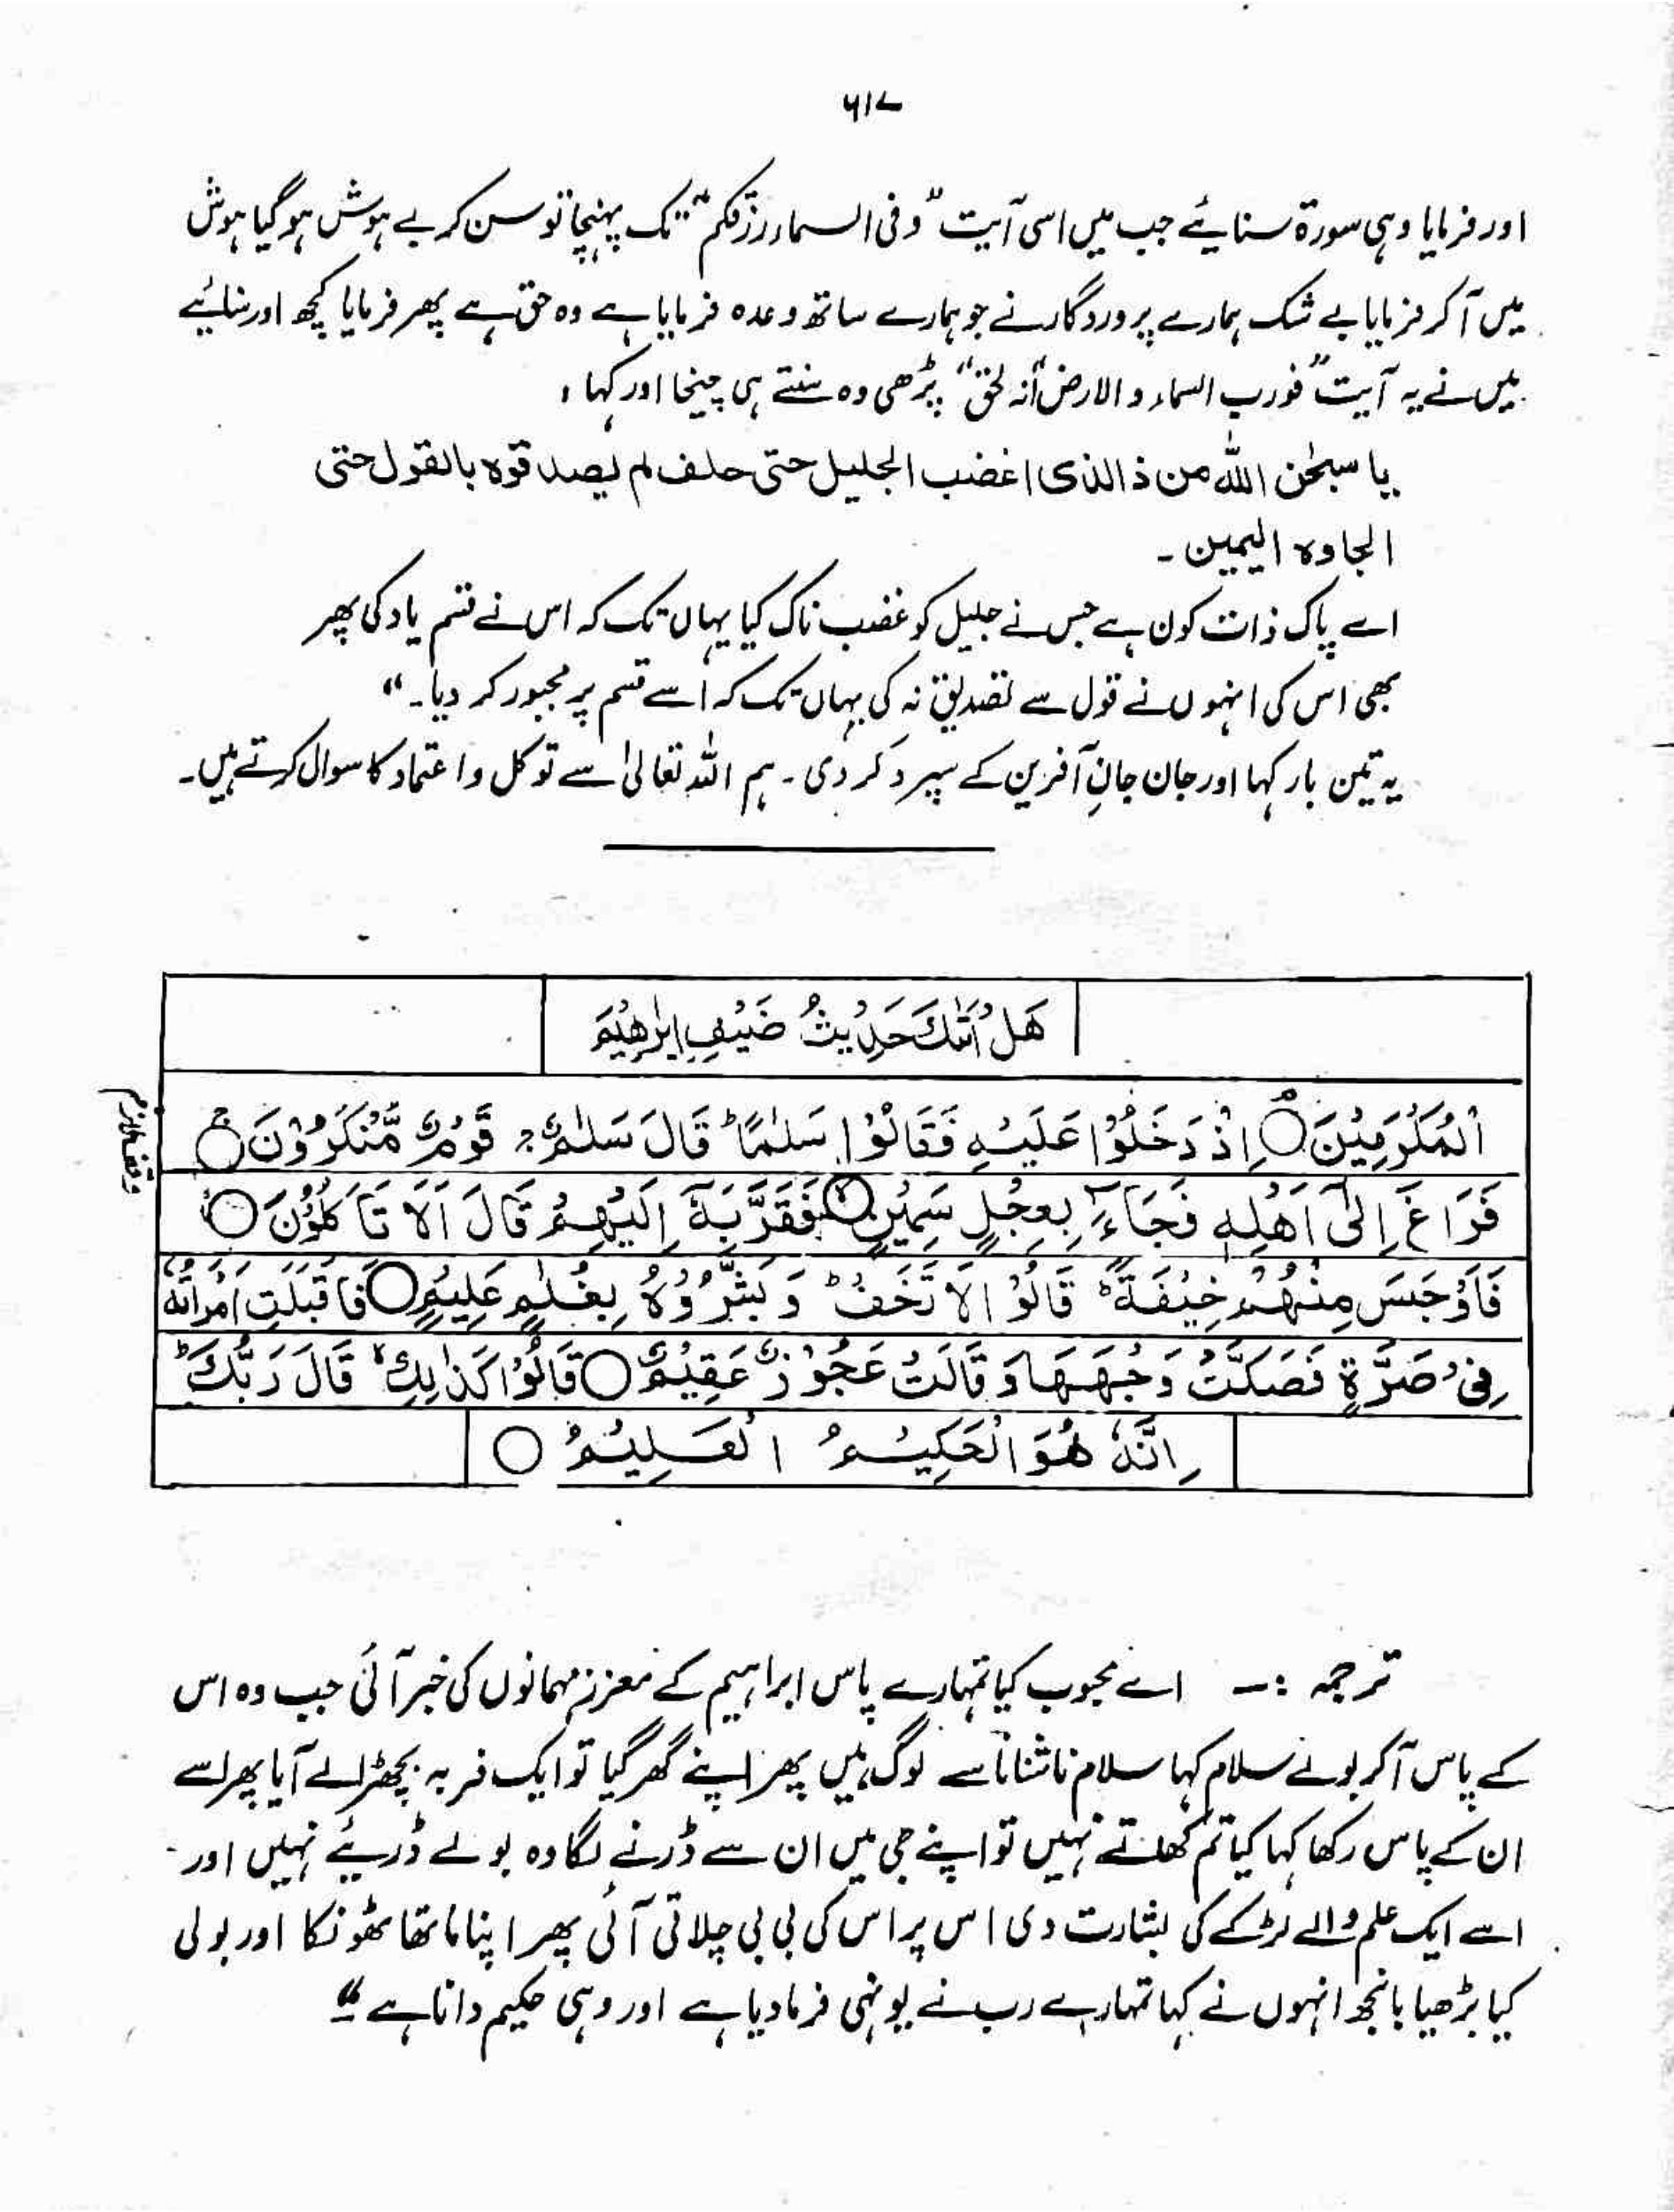 ۶۱۷
اور فرمایا وہی سورۃ سنایئے جب میں اسی آیت "وفی السماء رزقکم" تک پہنچا تو سن کر بے ہوش ہو گیا ہوش
میں آکر فرمایا بے شک ہمارے پروردگار نے جو ہمارے ساتھ وعدہ فرمایا ہے وہ حق ہے پھر فرمایا کچھ اور سنائیے
میں نے یہ آیت "فورب السماء و الارض انہ لحق" پڑھی وہ سنتے ہی چیخا اور کہا،
یا سبحٰن اللہ من ذا الذی اغضب الجلیل حتی حلف لم یصدقوہ بالقول حتی
الجاوہ الیمین ۔
اے پاک ذات کون ہے جس نے جلیل کو غضب ناک کیا یہاں تک کہ اس نے قسم یاد کی پھر
بھی اس کی انہوں نے قول سے تصدیق نہ کی یہاں تک کہ اسے قسم پر مجبور کر دیا۔"
یہ تین بار کہا اور جان جانِ آفرین کے سپرد کر دی ۔ ہم اللہ تعالیٰ سے توکل و اعتماد کا سوال کرتے ہیں۔
هَلْ اَتٰىكَ حَدِيْثُ ضَيْفِ اِبْرٰهِيْمَ
الْمُكْرَمِيْنَ ۘ○ اِذْ دَخَلُوْا عَلَيْهِ فَقَالُوْا سَلٰمًا ؕ قَالَ سَلٰمٌ ۚ قَوْمٌ مُّنْكَرُوْنَ ۚ○
وقف لازم
فَرَاغَ اِلٰٓى اَهْلِهٖ فَجَآءَ بِعِجْلٍ سَمِيْنٍ ۙ○ فَقَرَّبَهٗٓ اِلَيْهِمْ قَالَ اَلَا تَاْكُلُوْنَ ○
فَاَوْجَسَ مِنْهُمْ خِيْفَةً ؕ قَالُوْا لَا تَخَفْ ؕ وَ بَشَّرُوْهُ بِغُلٰمٍ عَلِيْمٍ ○ فَاَقْبَلَتِ امْرَاَتُهٗ
فِيْ صَرَّةٍ فَصَكَّتْ وَجْهَهَا وَ قَالَتْ عَجُوْزٌ عَقِيْمٌ ○ قَالُوْا كَذٰلِكِ ۙ قَالَ رَبُّكِ ؕ
اِنَّهٗ هُوَ الْحَكِيْمُ الْعَلِيْمُ ○
ترجمہ :۔ اے محبوب کیا تمہارے پاس ابراہیم کے معزز مہمانوں کی خبر آئی جب وہ اس
کے پاس آکر بولے سلام کہا سلام ناشناسا سے لوگ ہیں پھر اپنے گھر گیا تو ایک فربہ بچھڑا لے آیا پھر اسے
ان کے پاس رکھا کہا کیا تم کھاتے نہیں تو اپنے جی میں ان سے ڈرنے لگا وہ بولے ڈریئے نہیں اور
اسے ایک علم والے لڑکے کی بشارت دی اس پر اس کی بی بی چلاتی آئی پھر اپنا ماتھا ٹھونکا اور بولی
کیا بڑھیا بانجھ انہوں نے کہا تمہارے رب نے یونہی فرما دیا ہے اور وہی حکیم دانا ہے "